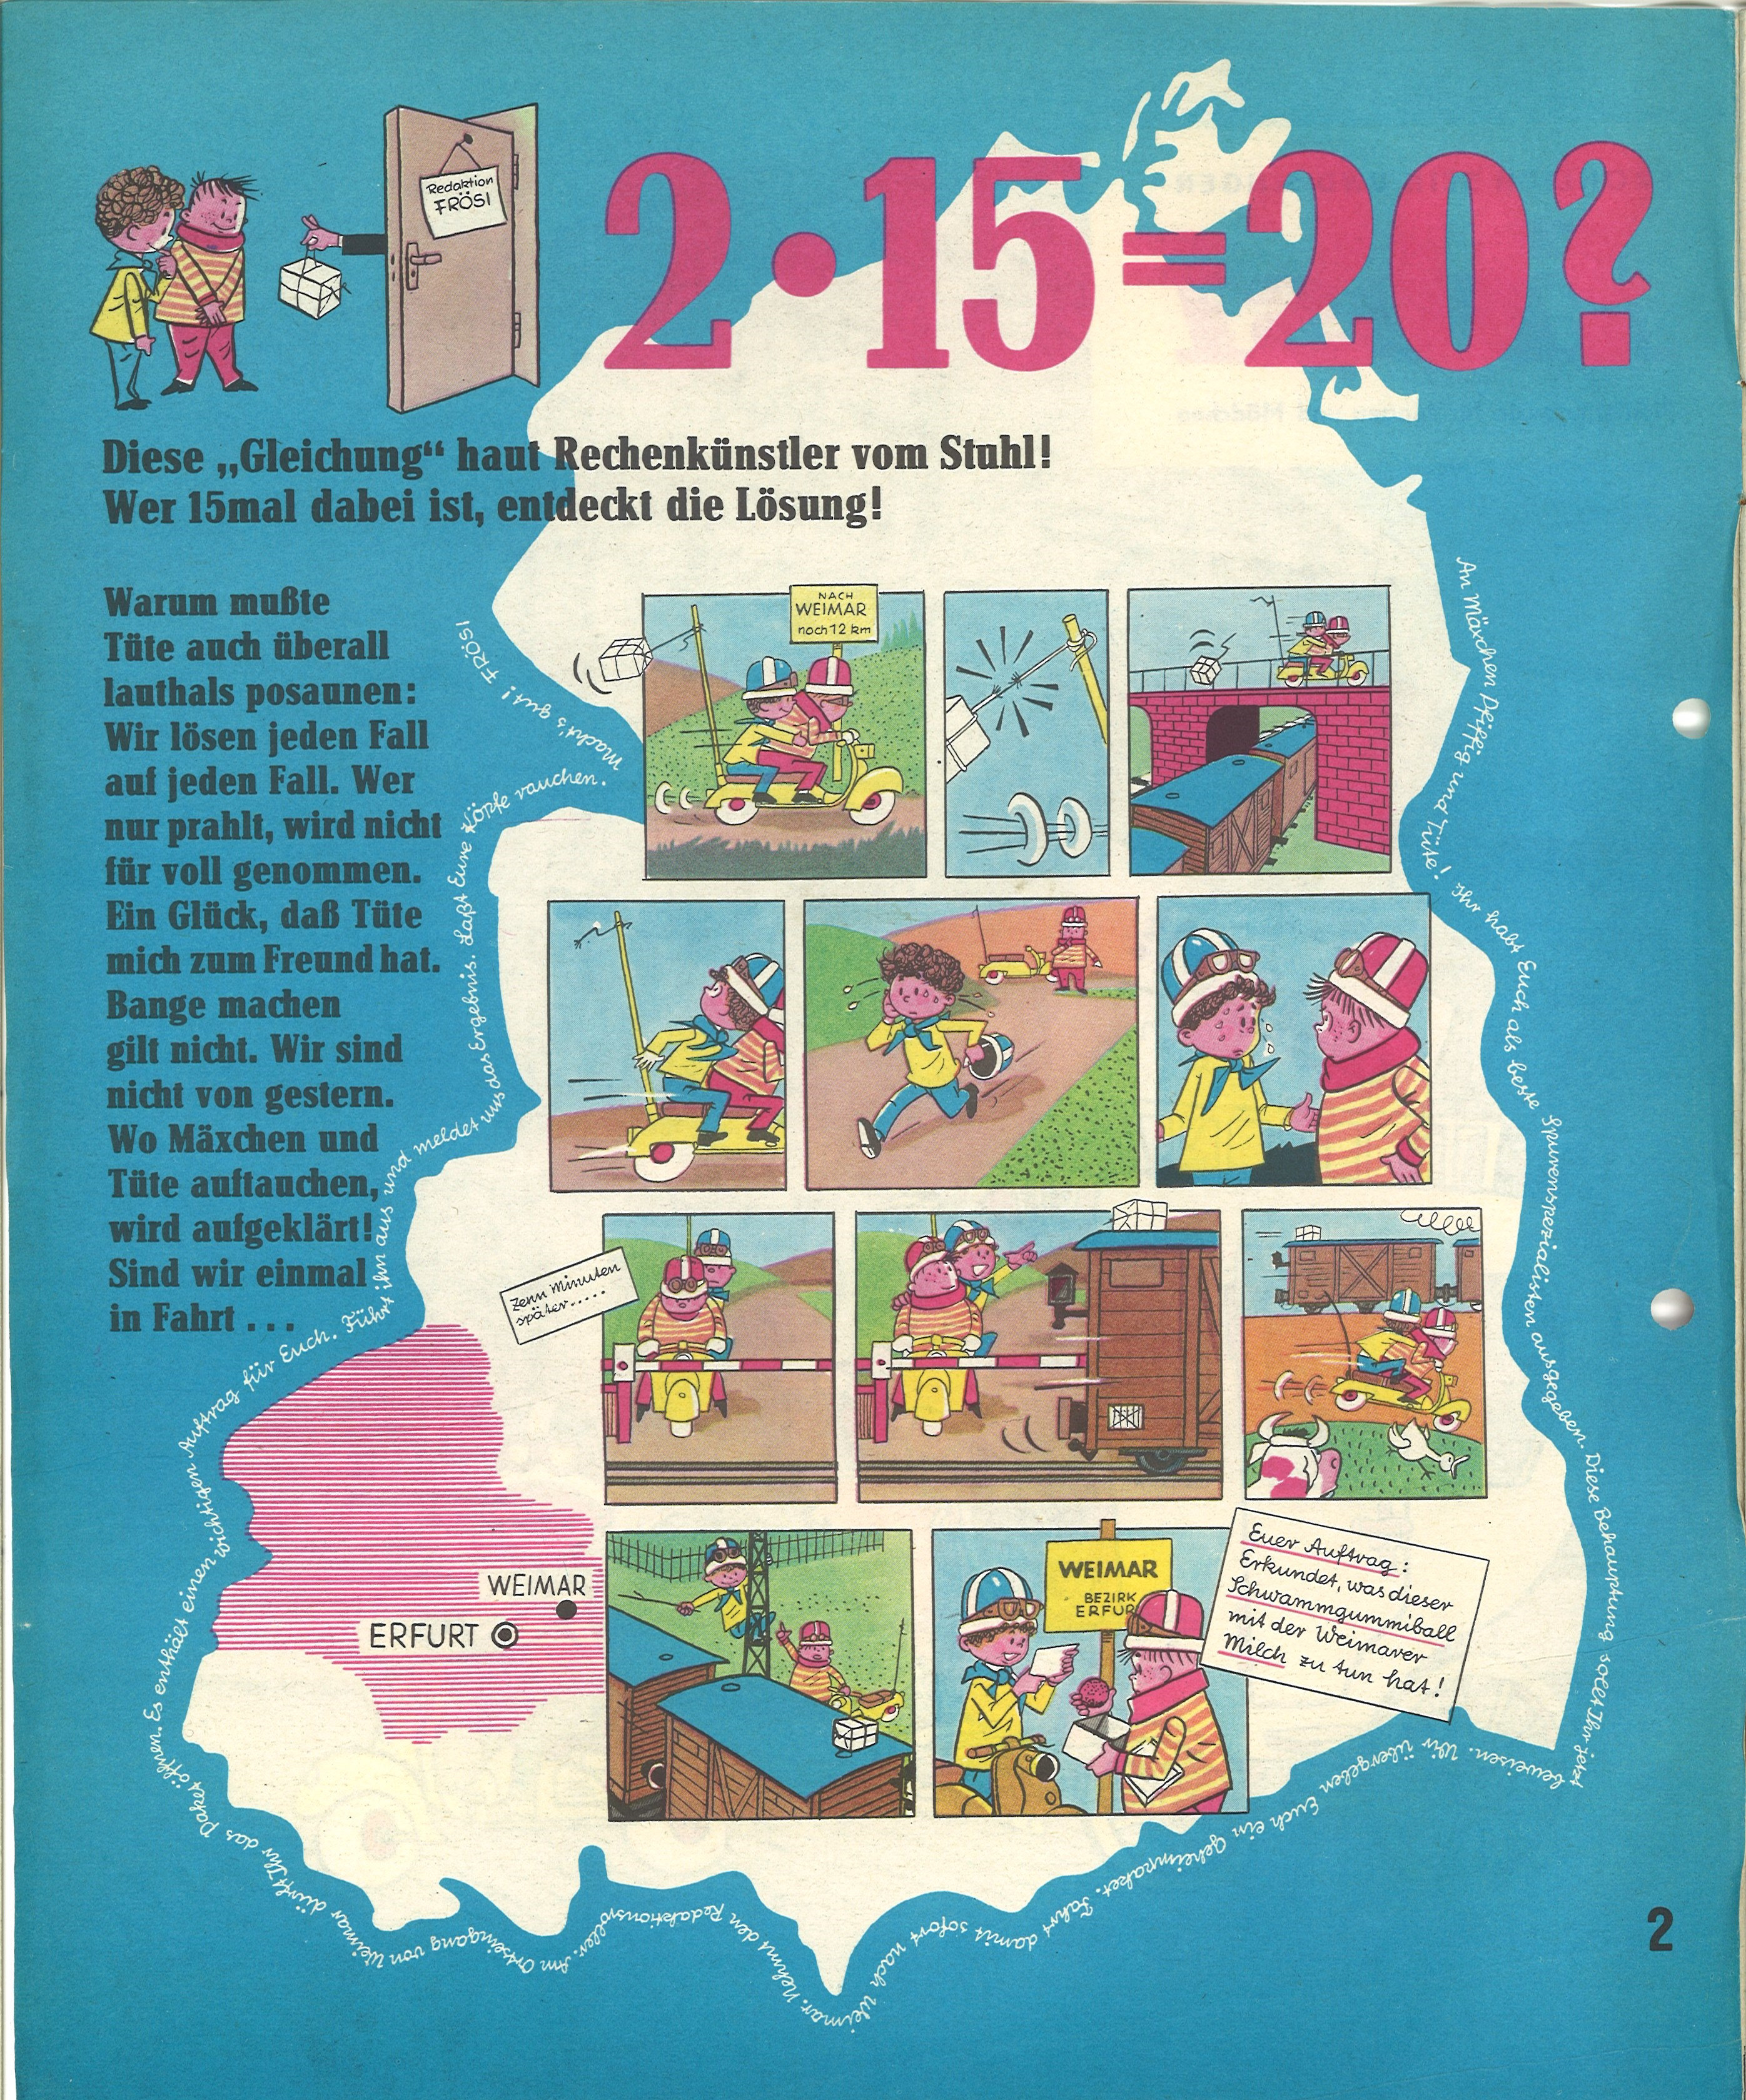 Redaktion
FRÖSI
2·15=20?
Diese „Gleichung“ haut Rechenkünstler vom Stuhl!
Wer 15mal dabei ist, entdeckt die Lösung!
Warum mußte
Tüte auch überall
lauthals posaunen:
Wir lösen jeden Fall
auf jeden Fall. Wer
nur prahlt, wird nicht
für voll genommen.
Ein Glück, daß Tüte
mich zum Freund hat.
Bange machen
gilt nicht. Wir sind
nicht von gestern.
Wo Mäxchen und
Tüte auftauchen,
wird aufgeklärt!
Sind wir einmal
in Fahrt . . .
An Mäxchen Pfiffig und Tüte! Ihr habt Euch als beste Spurenspezialisten ausgegeben. Diese Behauptung sollt Ihr jetzt beweisen. Wir übergeben Euch ein Geheimpaket. Fahrt damit sofort nach Weimar. Nehmt den Redaktionsroller. Am Ortseingang von Weimar dürft Ihr das Paket öffnen. Es enthält einen wichtigen Auftrag für Euch. Führt ihn aus und meldet uns das Ergebnis. Laßt Eure Köpfe rauchen. Macht's gut! FRÖSI
NACH
WEIMAR
noch 12 km
Zehn Minuten
später.....
WEIMAR
ERFURT
WEIMAR
BEZIRK
ERFUR
Euer Auftrag:
Erkundet, was dieser
Schwammgummiball
mit der Weimarer
Milch zu tun hat!
2